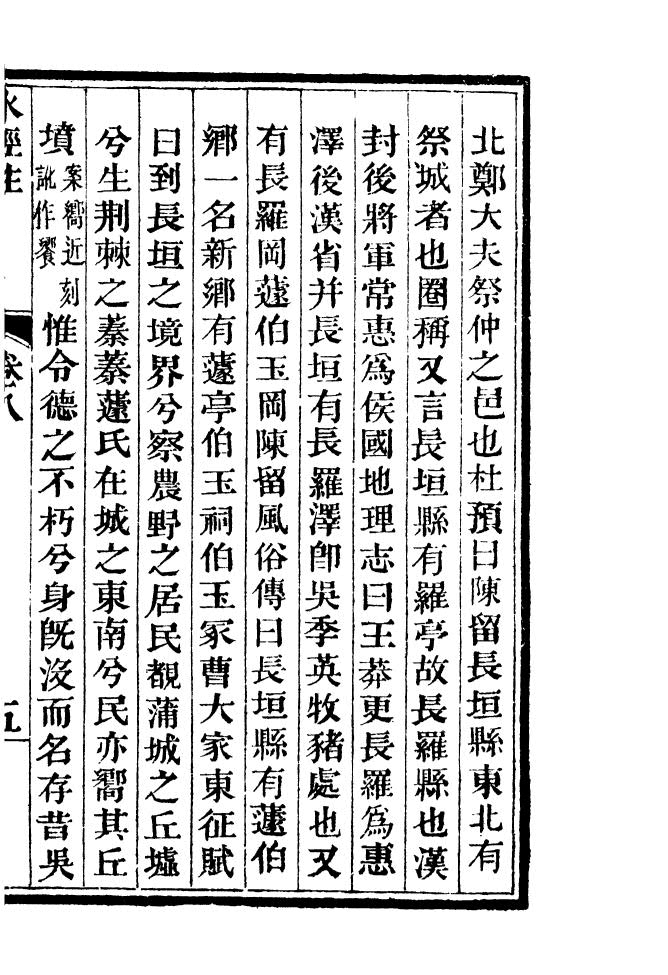 北鄭大夫祭仲之邑也杜預曰陳留長垣縣東北有
祭城者也圈稱又言長垣縣有羅亭故長羅縣也漢
封後將軍常惠爲侯國地理志曰王莽更長羅爲惠
澤後漢省并長垣有長羅澤卽吳季英牧豬處也又
有長羅岡蘧伯玉岡陳留風俗傳曰長垣縣有蘧伯
鄉一名新鄉有蘧亭伯玉祠伯玉冢曹大家東征賦
曰到長垣之境界兮察農野之居民覩蒲城之丘墟
兮生荆棘之蓁蓁蘧氏在城之東南兮民亦嚮其丘
墳案嚮近刻訛作饗惟令德之不朽兮身旣沒而名存昔吳
水經注 卷八 五